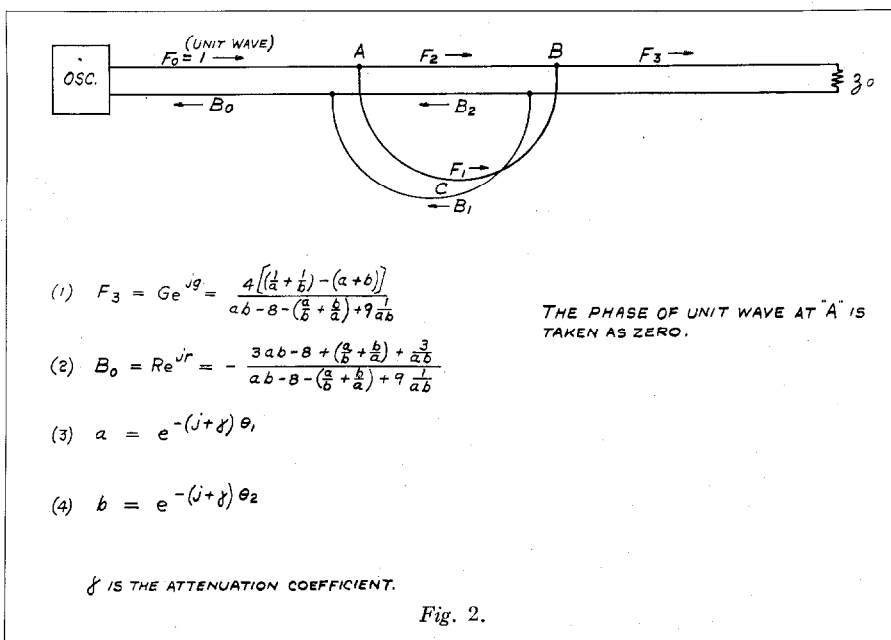 (UNIT WAVE)
F₀ = 1 → A F₂ → B F₃ →
OSC. z₀
← B₀ ← B₂
F₁ →
C
← B₁
(1) F₃ = Ge^{jg} = \frac{4[(\frac{1}{a} + \frac{1}{b}) - (a + b)]}{ab - 8 - (\frac{a}{b} + \frac{b}{a}) + 9\frac{1}{ab}}
THE PHASE OF UNIT WAVE AT "A" IS
TAKEN AS ZERO.
(2) B₀ = Re^{jr} = - \frac{3ab - 8 + (\frac{a}{b} + \frac{b}{a}) + \frac{3}{ab}}{ab - 8 - (\frac{a}{b} + \frac{b}{a}) + 9\frac{1}{ab}}
(3) a = e^{-(j+γ)θ₁}
(4) b = e^{-(j+γ)θ₂}
γ IS THE ATTENUATION COEFFICIENT.
Fig. 2.